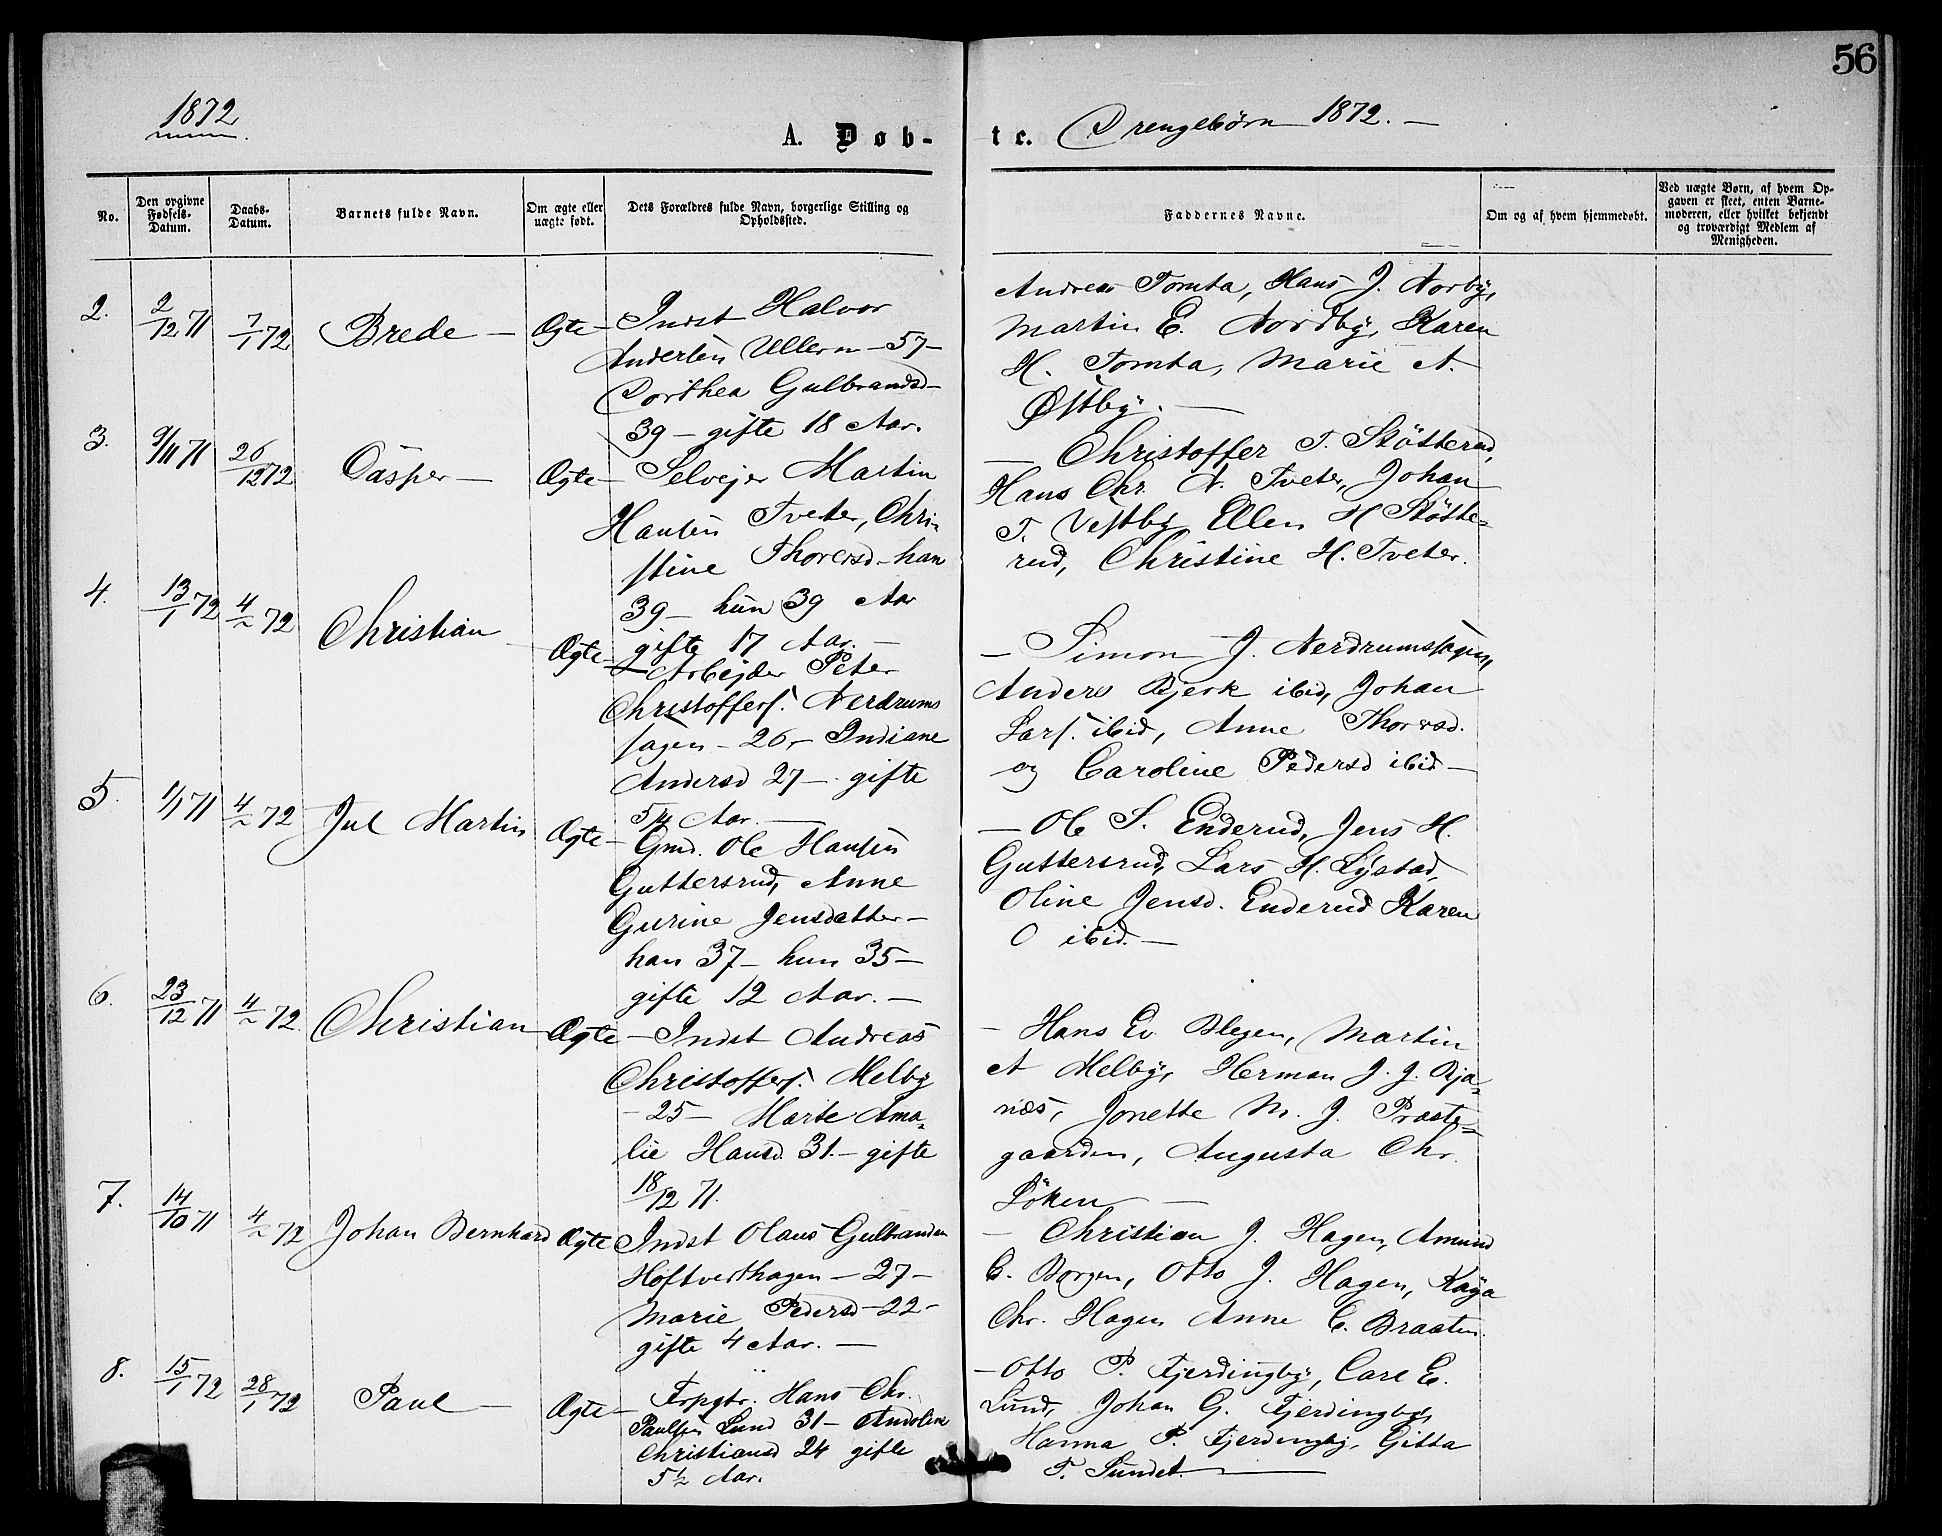 56
1872
A. Døb-
te. Drengebørn 1872. —
No.
Den opgivne Fødsels-Datum.
Daabs-Datum.
Barnets fulde Navn.
Om ægte eller uægte født.
Dets Forældres fulde Navn, borgerlige Stilling og Opholdssted.
Faddernes Navne.
Om og af hvem hjemmedøbt.
Ved uægte Børn, af hvem Opgaven er skeet, enten Barnemoderen, eller hvilket bekjendt og troværdigt Medlem af Menigheden.
2. 2/12 71 7/1 72 Brede — Ægte —
Indst Halvor
Andersen Ullern — 57 —
Dorthea Gulbrandsd —
39 — gifte 18 Aar.
Andreas Tomta, Hans J. Norby,
Martin E. Nordby, Karen
H. Tomta, Marie A.
Østby. —
3. 9/11 71 26/12 72 Casper — Ægte —
Selvejer Martin
Hansen Tveter, Chri-
stine Thoresd — han
39 — hun 39 Aar
gifte 17 Aar. —
— Christoffer T. Støtterud,
Hans Chr. A. Tveter, Johan
T. Vestby Ellen H Støtte-
rud, Christine H. Tveter.
4. 13/1 72 4/2 72 Christian — Ægte —
Arbejder Peter
Christoffers. Nerdrums
sagen — 26 — Indiane
Andersd 27 — gifte
5 1/4 Aar. —
— Simon J. Nerdrumssagen,
Anders Bjerk ibid, Johan
Lars. ibid, Anne Thoresd.
og Caroline Pedersd ibid —
5. 1/1 71 4/2 72 Jul Martin Ægte —
Gmd. Ole Hansen
Guttersrud, Anne
Gurine Jensdatter —
han 37 — hun 35 —
gifte 12 Aar. —
— Ole S. Enderud, Jens H.
Guttersrud, Lars H. Lystad,
Oline Jensd. Enderud Karen
O ibid. —
6. 23/12 71 4/2 72 Christian Ægte
— Indst Andreas
Christoffers. Melby
— 25 — Marte Ama-
lie Hansd. 31. — gifte
18/12 71.
— Hans Ev. Blegen, Martin
A Melby, Herman J. J. Bja-
næs, Jonette M. J. Præste-
gaarden, Augusta Chr.
Løken —
7. 14/10 71 4/2 72 Johan Bernhard Ægte
Indst Olaus Gulbrandsen
Hoftvethagen — 27 —
Marie Pedersd — 22 —
gifte 4 Aar. —
— Christian J. Hagen, Amund
C. Borgen, Otto J. Hagen, Kaja
Chr. Hagen Anne C. Braaten.
8. 15/1 72 28/1 72 Paul — Ægte —
Forpgtr. Hans Chr.
Paulsen Lund 31 — Andoline
Christiansd 24 gifte
5 1/2 Aar.
— Otto P. Fjerdingby, Carl E.
Lund, Johan G. Fjerdingby,
Hanna P. Fjerdingby, Gitta
T. Sundet. —